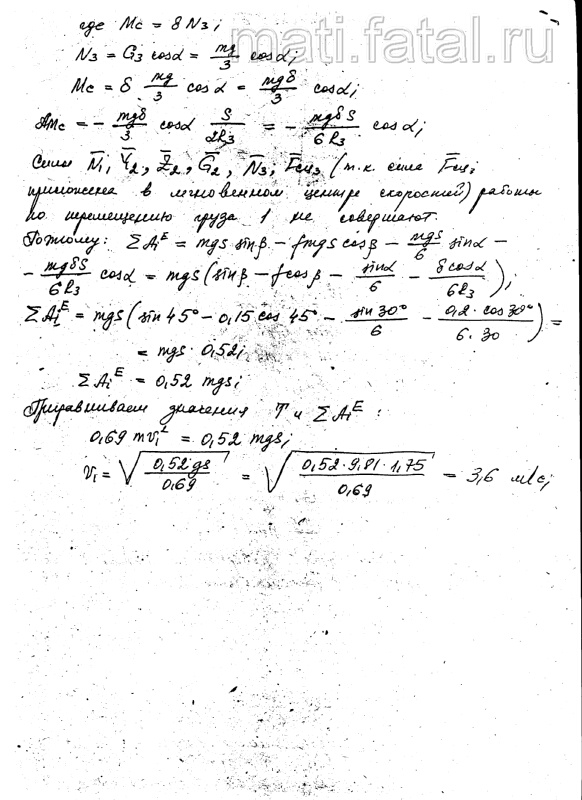 mati.fatal.ru
где Mc = δN₃;
N₃ = G₃ cosα = mg/3 cosα;
Mc = δ mg/3 cosα = mgδ/3 cosα;
A_Mc = - mgδ/3 cosα S/2R₃ = - mgδS/6R₃ cosα;
Силы N̄₁, Ȳ₂, Z̄₂, Ḡ₂, N̄₃, F̄сц₃ (т.к. сила F̄сц₃
приложена в мгновенном центре скоростей) работы
по перемещению груза 1 не совершают.
Поэтому: ΣAᵢᴱ = mgs sinβ - fmgs cosβ - mgs/6 sinα -
- mgδS/6R₃ cosα = mgs(sinβ - fcosβ - sinα/6 - δcosα/6R₃);
ΣAᵢᴱ = mgs(sin 45° - 0,15 cos 45° - sin 30°/6 - 0,2 · cos 30°/6 · 30) =
= mgs · 0,52;
ΣAᵢᴱ = 0,52 mgs;
Приравниваем значения T и ΣAᵢᴱ :
0,69 mv₁² = 0,52 mgs;
v₁ = √(0,52 gs/0,69) = √(0,52 · 9,81 · 1,75/0,69) = 3,6 м/с;